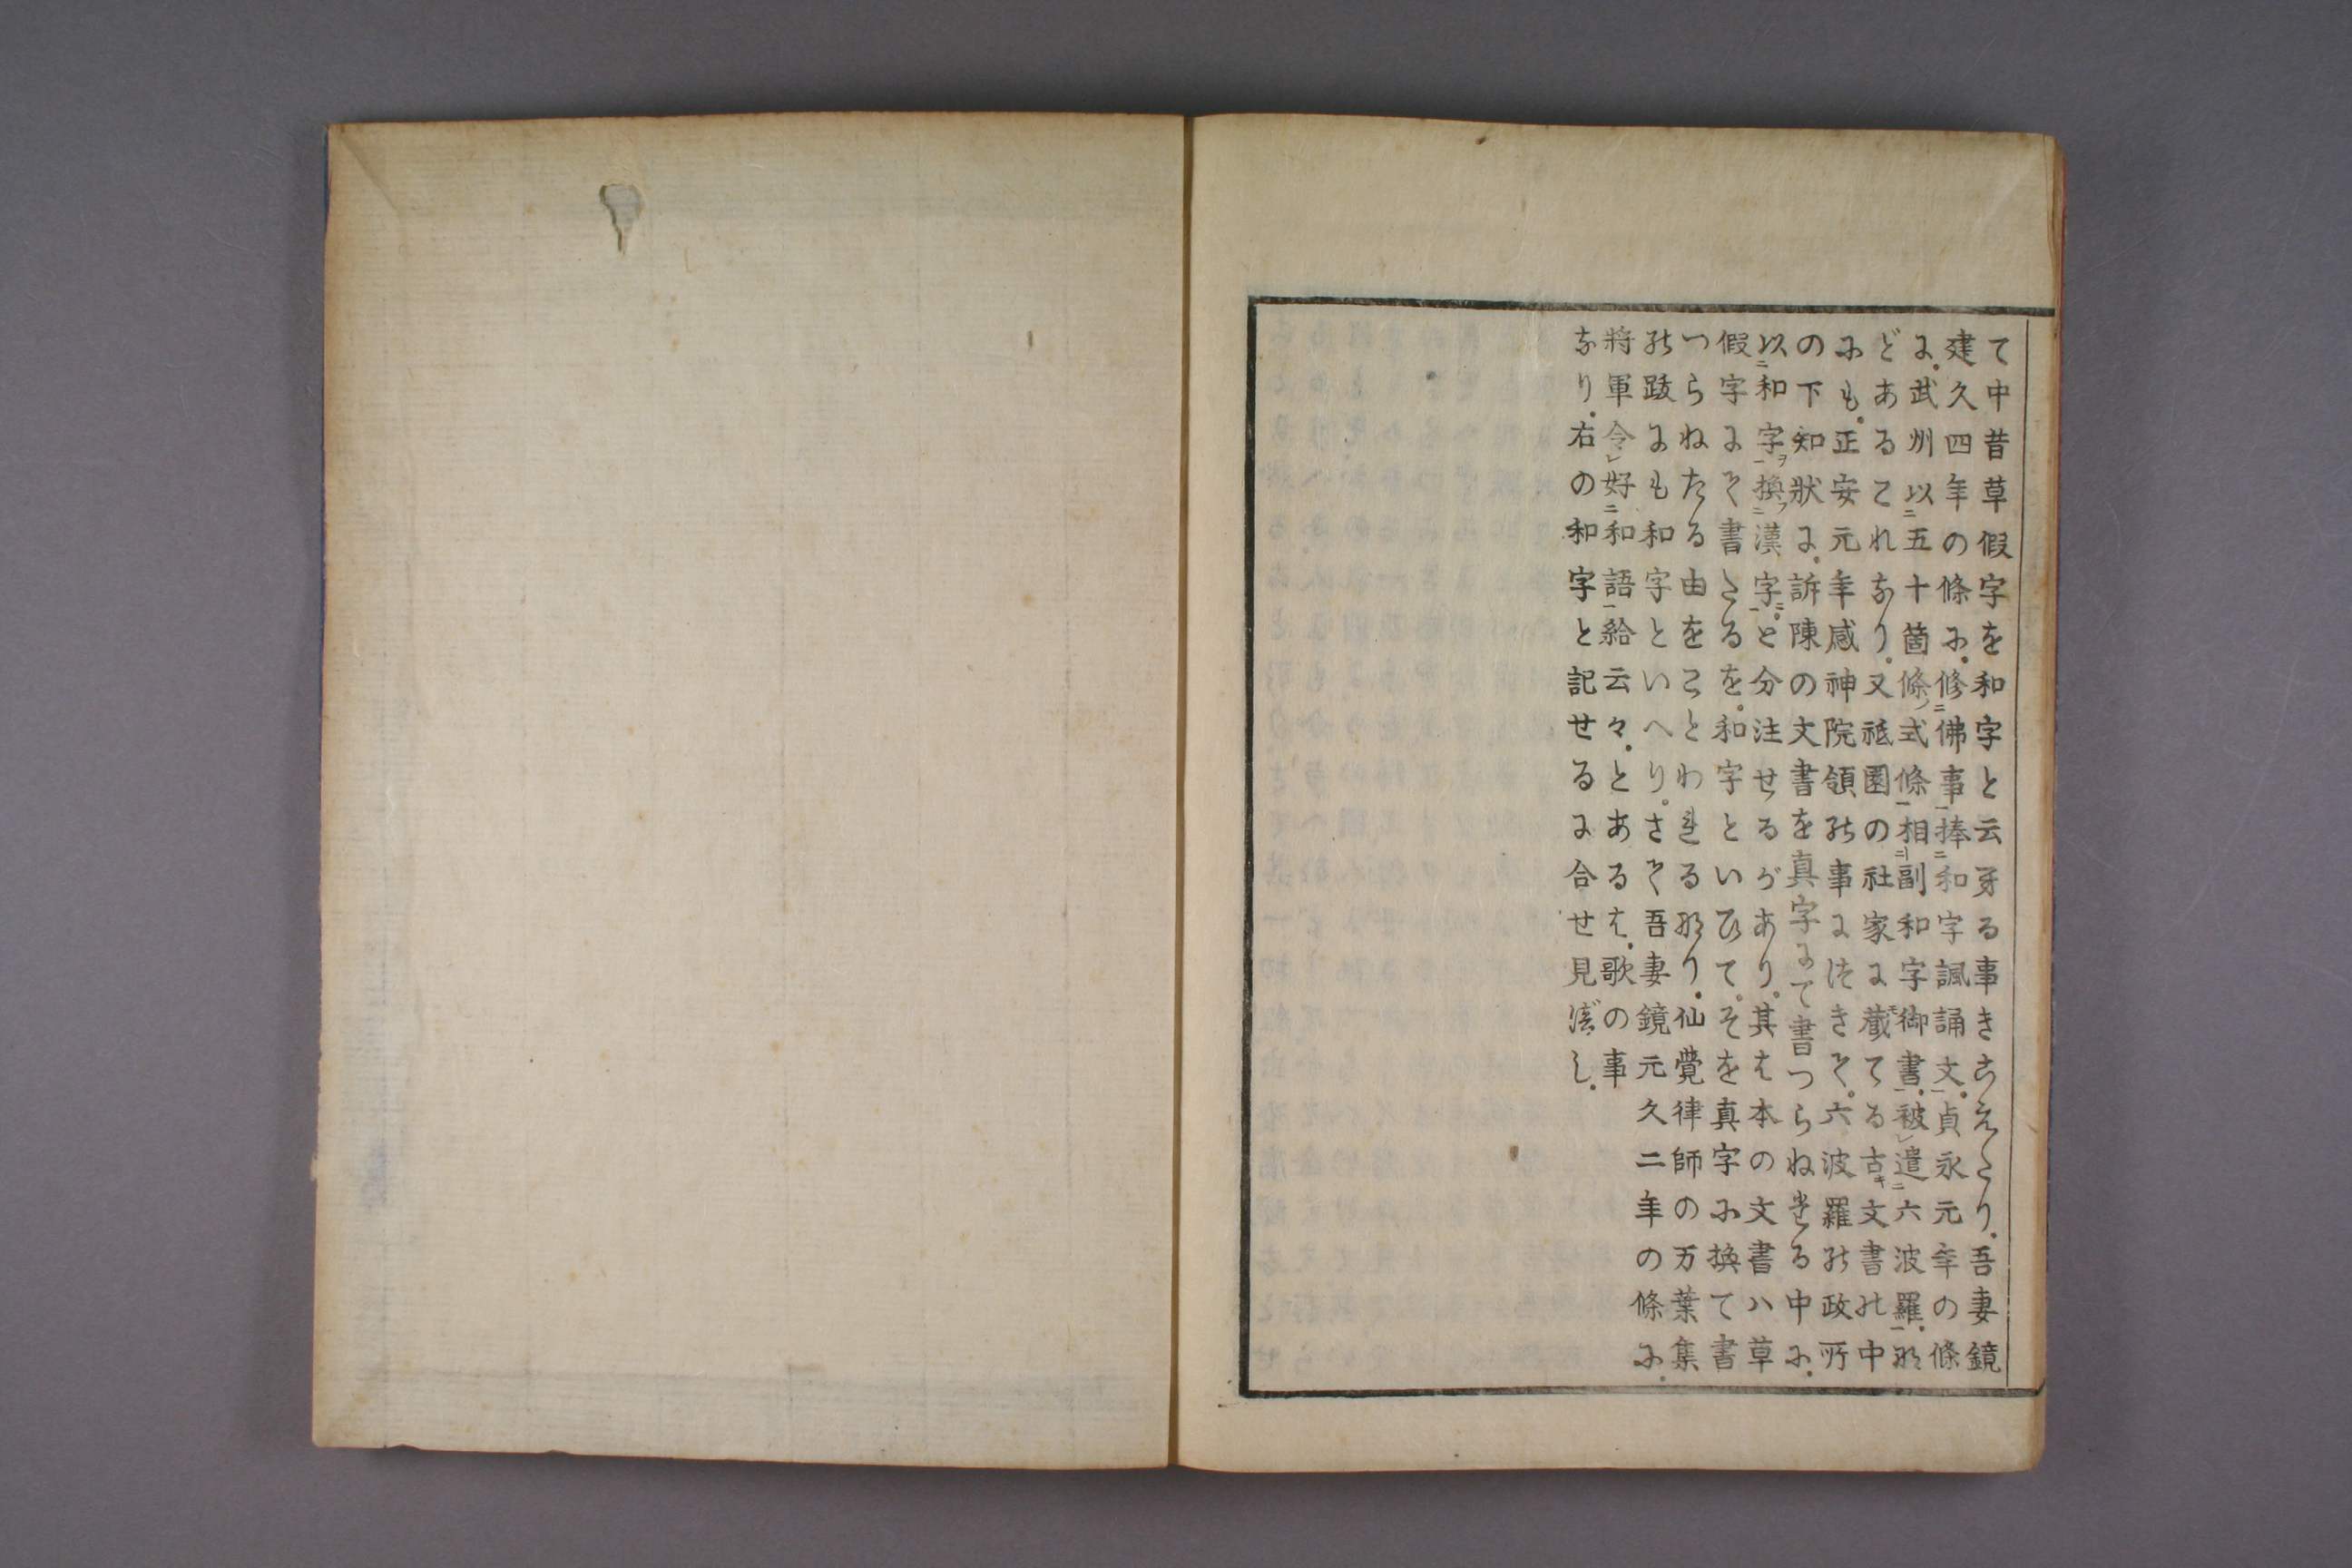 て中昔草假字を和字と云牙る事きこえたり。吾妻鏡
建久四年の條に。修二佛事一捧二和字諷誦文一。貞永元年の條
に。武州以二五十箇條ノ式條一相二副和字御書一。被レ遣二六波羅一。な
どあるこれなり。又祗園の社家に蔵てる古キ文書の中
にも。正安元年感神院領の事につきそ。六波羅の政所
の下知狀に。訴陳の文書を真字にて書つらねたる中に。
以二和字一ヲ換フ二漢字一ニ。と分注せるがあり。其は本の文書ハ草
假字にそ書たるを。和字といひて。そを真字に換て書
つらねたる由をことわれるなり。仙覺律師の万葉集
の跋にも和字といへり。さそ吾妻鏡元久二年の條に。
將軍令レ好二和語一給云々。とあるは。歌の事
なり。右の和字と記せるに合せ見べし。